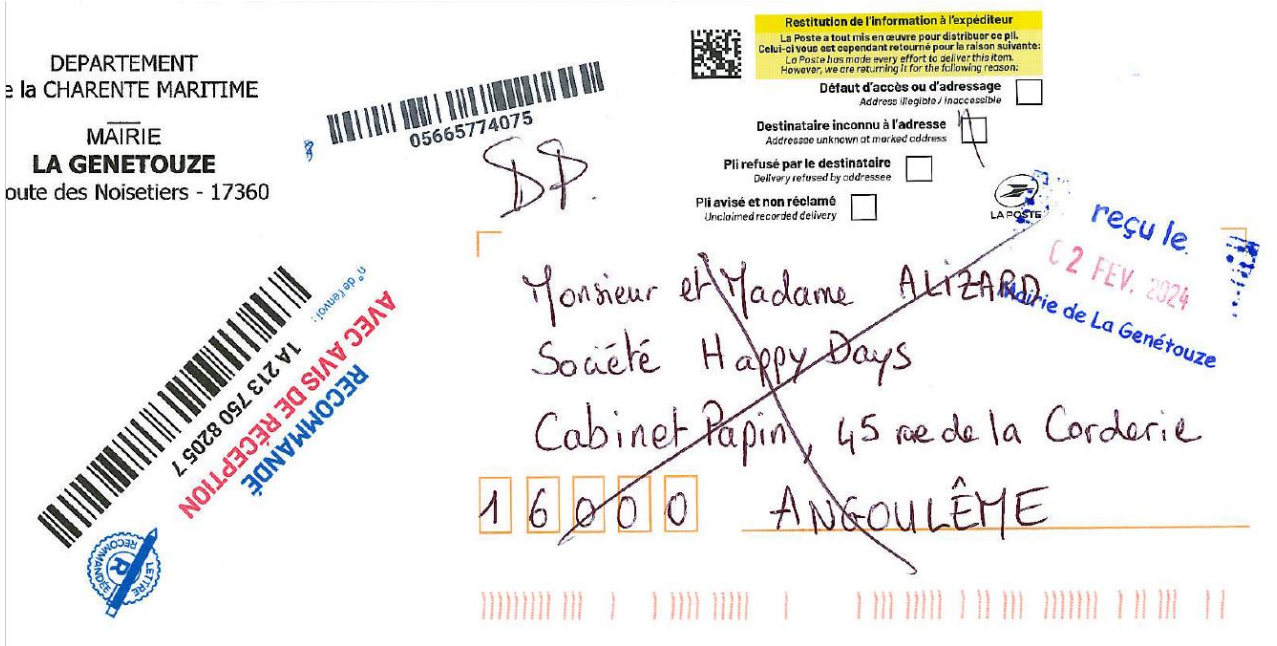 DEPARTEMENT
e la CHARENTE MARITIME
MAIRIE
LA GENETOUZE
oute des Noisetiers - 17360
05665774075
Restitution de l'information à l'expéditeur
La Poste a tout mis en œuvre pour distribuer ce pli.
Celui-ci vous est cependant retourné pour la raison suivante:
La Poste has made every effort to deliver this item.
However, we are returning it for the following reason:
Défaut d'accès ou d'adressage
Address illegible / Inaccessible
Destinataire inconnu à l'adresse
Addressee unknown at marked address
Pli refusé par le destinataire
Delivery refused by addressee
Pli avisé et non réclamé
Unclaimed recorded delivery
LA POSTE
reçu le
02 FEV. 2024
Mairie de La Genétouze
n° de l'envoi :
1A 213 750 8205 7
AVEC AVIS DE RÉCEPTION
RECOMMANDÉ
LETTRE RECOMMANDÉE
R
Monsieur et Madame ALIZARD
Société Happy Days
Cabinet Papin, 45 rue de la Corderie
16000 ANGOULÊME